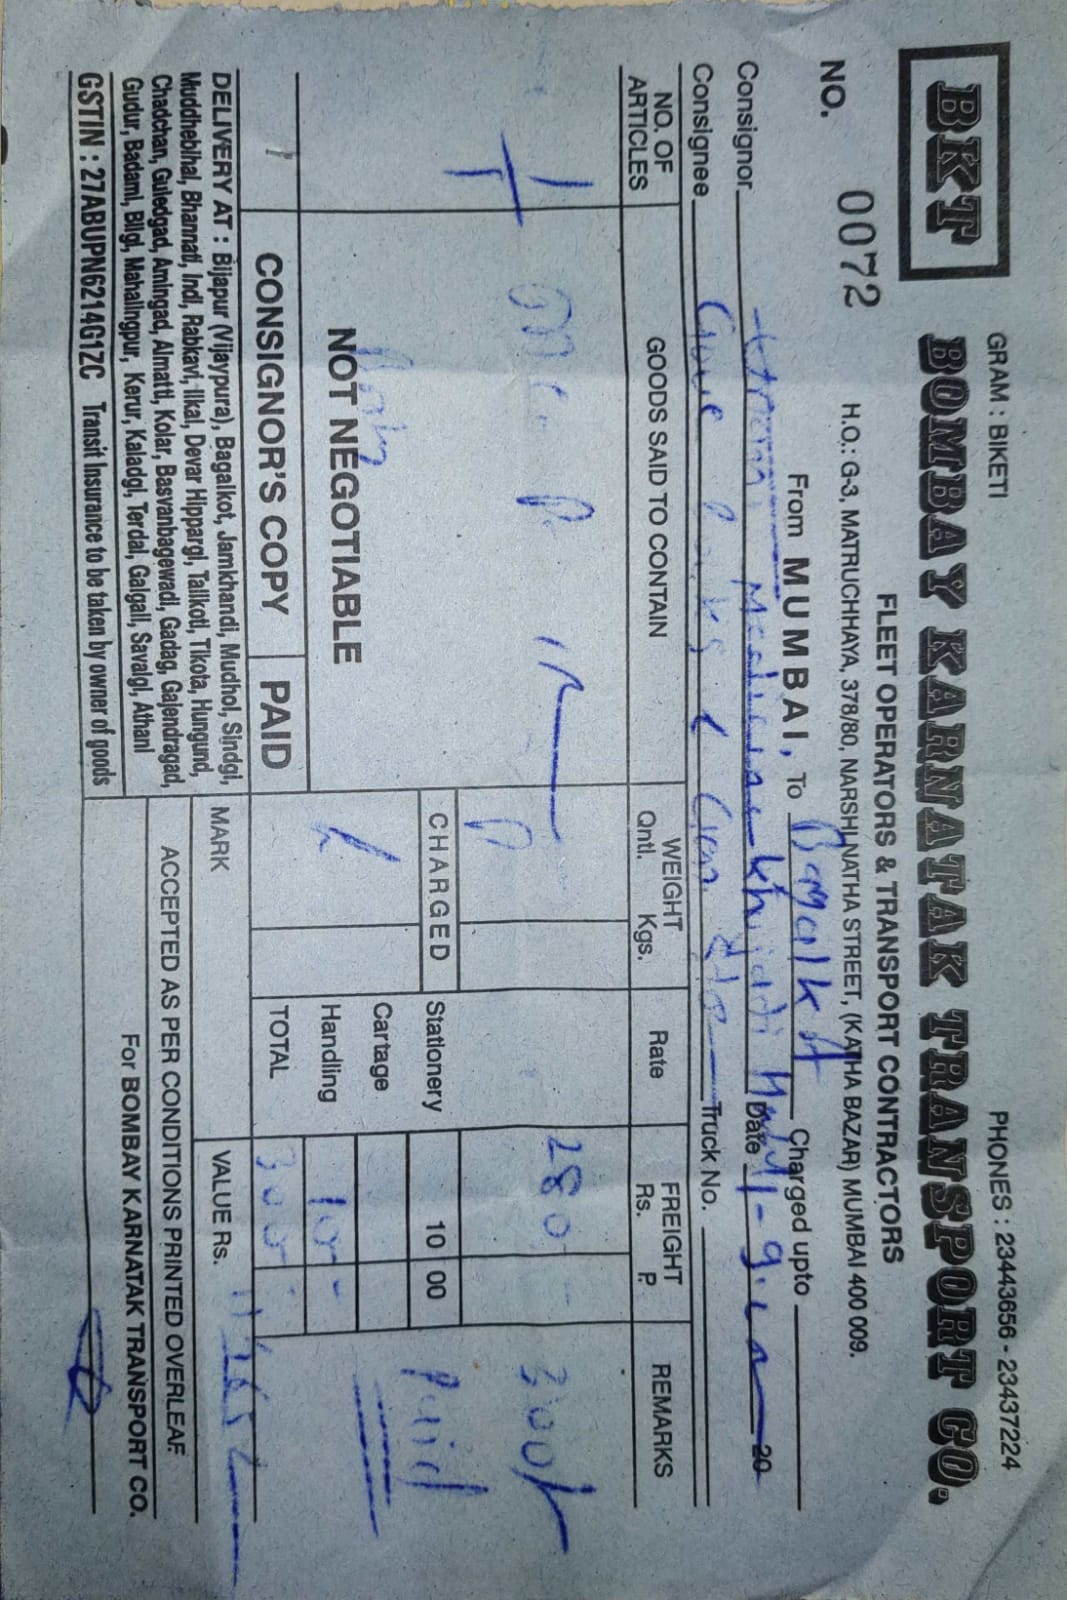 GRAM : BIKETI PHONES : 23443656 - 23437224
BKT BOMBAY KARNATAK TRANSPORT CO.
FLEET OPERATORS & TRANSPORT CONTRACTORS
H.O.: G-3, MATRUCHHAYA, 378/80, NARSHI NATHA STREET, (KATHA BAZAR) MUMBAI 400 009.
NO. 0072 From MUMBAI, To Bagalkot Charged upto
Consignor Date 20
Consignee Truck No.
NO. OF ARTICLES GOODS SAID TO CONTAIN WEIGHT Qntl. Kgs. Rate FREIGHT Rs. P. REMARKS
1 280 300/-
CHARGED Stationery 10 00 Paid
Cartage
NOT NEGOTIABLE Handling 10 -
CONSIGNOR'S COPY PAID TOTAL 300
DELIVERY AT : Bijapur (Vijaypura), Bagalkot, Jamkhandi, Mudhol, Sindgi,
Muddhebihal, Bhannati, Indi, Rabkavi, Ilkal, Devar Hippargi, Talikoti, Tikota, Hungund,
Chadchan, Guledgad, Amingad, Almatti, Kolar, Basvanbagewadi, Gadag, Gajendragad,
Gudur, Badami, Bilgi, Mahalingpur, Kerur, Kaladgi, Terdal, Galgali, Savalgi, Athani
GSTIN : 27ABUPN6214G1ZC Transit Insurance to be taken by owner of goods
MARK VALUE Rs.
ACCEPTED AS PER CONDITIONS PRINTED OVERLEAF
For BOMBAY KARNATAK TRANSPORT CO.